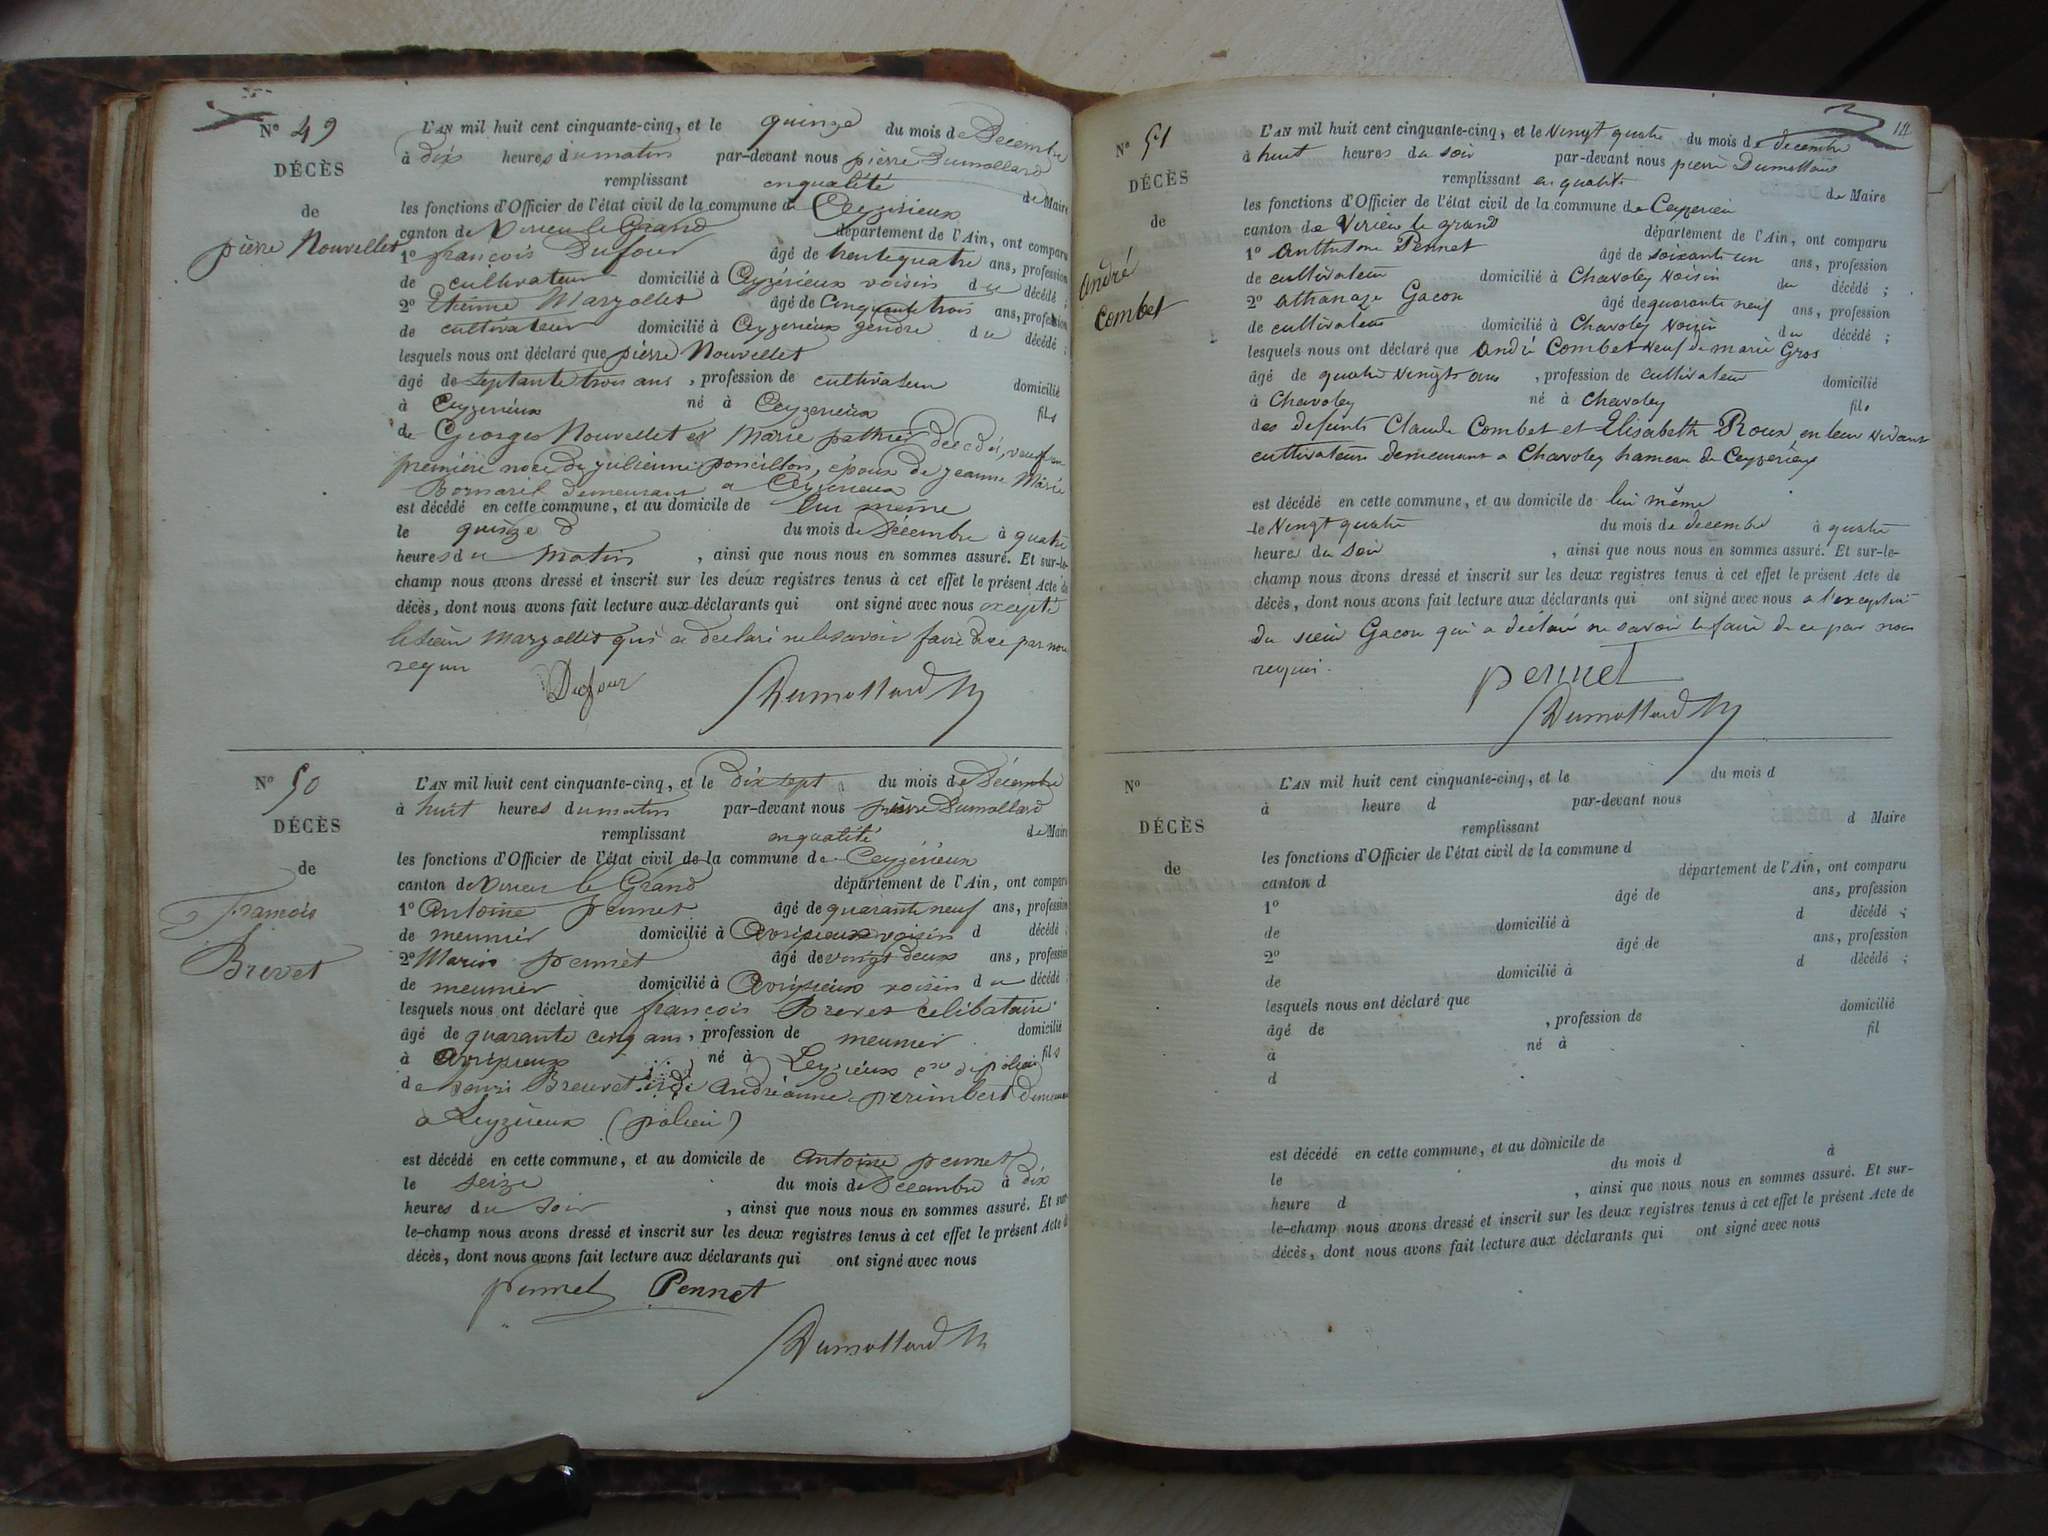 N° 49
DÉCÈS
de
pierre Nouvellet
L'AN mil huit cent cinquante-cinq, et le quinze du mois de Décembre
à dix heures du matin par-devant nous pierre Dumollard
remplissant en qualité de Maire
les fonctions d'Officier de l'état civil de la commune de Ceyzerieux
canton de Virieu le Grand département de l'Ain, ont comparu
1° françois Dufour âgé de trente quatre ans, profession
de cultivateur domicilié à Ceyzérieux voisin du décédé ;
2° Etienne Marzollet âgé de Cinquante trois ans, profession
de cultivateur domicilié à Ceyzerieux gendre du décédé ;
lesquels nous ont déclaré que pierre Nouvellet
âgé de septante trois ans, profession de cultivateur domicilié
à Ceyzerieux né à Ceyzerieux fils
de Georges Nouvellet et Marie décédés, veuf en
premiere noce de julienne poncillon, époux de jeanne Marie
demeurant a Ceyzerieux
est décédé en cette commune, et au domicile de lui meme
le quinze du mois de Décembre à quatre
heures du matin, ainsi que nous nous en sommes assuré. Et sur-le-
champ nous avons dressé et inscrit sur les deux registres tenus à cet effet le présent Acte de
décès, dont nous avons fait lecture aux déclarants qui ont signé avec nous excepté
le sieur Marzollet qui a declaré ne le savoir faire de ce par nous
requis
Dufour Dumollard M
N° 50
DÉCÈS
de
francois
Brevet
L'AN mil huit cent cinquante-cinq, et le dix sept du mois de Décembre
à huit heures du matin par-devant nous pierre Dumollard
remplissant en qualité de Maire
les fonctions d'Officier de l'état civil de la commune de Ceyzérieux
canton de Virieu le Grand département de l'Ain, ont comparu
1° Antoine pennet âgé de quarante neuf ans, profession
de meunier domicilié à Avrissieux voisin d décédé ;
2° Marin pennet âgé de vingt deux ans, profession
de meunier domicilié à Avrissieux voisin du décédé ;
lesquels nous ont déclaré que françois Brevet célibataire
âgé de quarante cinq ans, profession de meunier domicilié
à Avrissieux né à Leyzieux fils
de Brevet Andréanne perimbert
a Leyzieux (polieu)
est décédé en cette commune, et au domicile de antoine pennet
le seize du mois de Décembre à dix
heures du soir, ainsi que nous nous en sommes assuré. Et sur-
le-champ nous avons dressé et inscrit sur les deux registres tenus à cet effet le présent Acte d
décès, dont nous avons fait lecture aux déclarants qui ont signé avec nous
pennet Pennet
Dumollard M
111
N° 51
DÉCÈS
de
André
Combet
L'AN mil huit cent cinquante-cinq, et le Vingt quatre du mois de decembre
à huit heures du soir par-devant nous pierre Dumollard
remplissant en qualité de Maire
les fonctions d'Officier de l'état civil de la commune de Ceyzerieu
canton de Virieu le grand département de l'Ain, ont comparu
1° Pennet âgé de soixante un ans, profession
de cultivateur domicilié à Chavoley voisin du décédé ;
2° athanaze Gacon âgé de quarante neuf ans, profession
de cultivateur domicilié à Chavoley voisin du décédé ;
lesquels nous ont déclaré que André Combet veuf de marie Gros
âgé de quatre vingts ans, profession de cultivateur domicilié
à Chavoley né à Chavoley fils
des defunts Claude Combet et Elisabeth Roux, en leur vivant
cultivateurs demeurant a Chavoley hameau de Ceyzerieux
est décédé en cette commune, et au domicile de lui même
le Vingt quatre du mois de decembre à quatre
heures du soir, ainsi que nous nous en sommes assuré. Et sur-le-
champ nous avons dressé et inscrit sur les deux registres tenus à cet effet le présent Acte de
décès, dont nous avons fait lecture aux déclarants qui ont signé avec nous a l'exception
du sieur Gacon qui a déclaré ne savoir le faire de ce par nous
requis.
pennet
Dumollard M
N°
DÉCÈS
de
L'AN mil huit cent cinquante-cinq, et le du mois d
à heure d par-devant nous
remplissant d Maire
les fonctions d'Officier de l'état civil de la commune d
canton d département de l'Ain, ont comparu
1° âgé de ans, profession
de domicilié à d décédé ;
2° âgé de ans, profession
de domicilié à d décédé ;
lesquels nous ont déclaré que
âgé de , profession de domicilié
à né à fil
d
est décédé en cette commune, et au domicile de
le du mois d à
heure d , ainsi que nous nous en sommes assuré. Et sur-
le-champ nous avons dressé et inscrit sur les deux registres tenus à cet effet le présent Acte de
décès, dont nous avons fait lecture aux déclarants qui ont signé avec nous